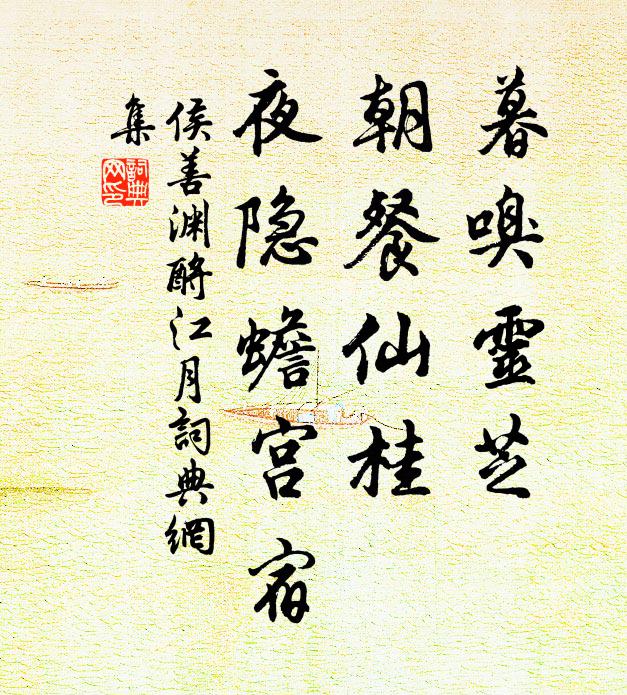 暮嗅靈芝
朝餐仙桂
夜隐蟾宫宿
侯善渊酹江月詞典網
集
詞典
网印